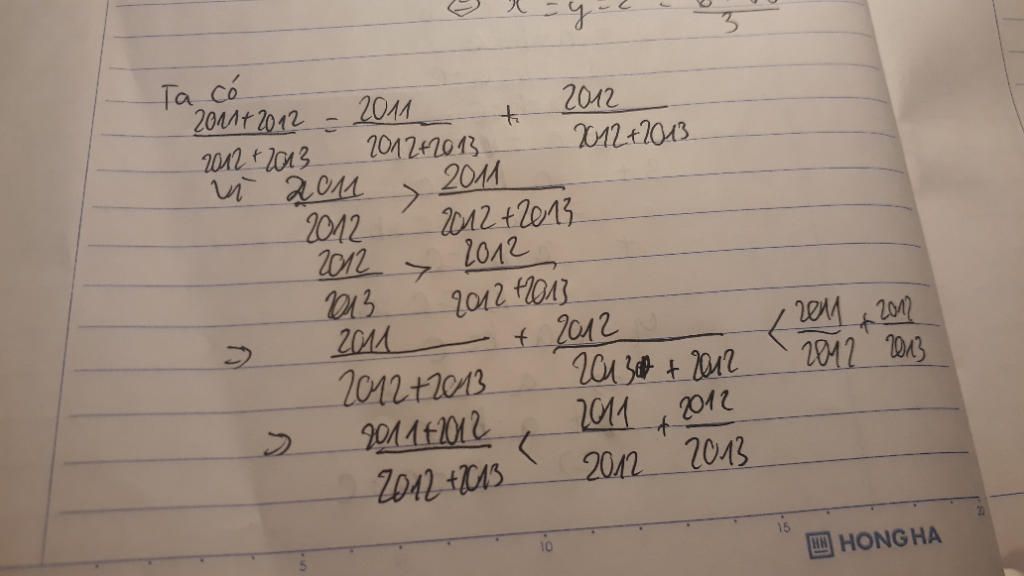 ⇔ x = y = z =
3
Ta có
2011+2012 / 2012+2013 = 2011 / 2012+2013 + 2012 / 2012+2013
Vì 2011 / 2012 > 2011 / 2012+2013
2012 / 2013 > 2012 / 2012+2013
⇒ 2011 / 2012+2013 + 2012 / 2013 + 2012 < 2011 / 2012 + 2012 / 2013
⇒ 2011+2012 / 2012+2013 < 2011 / 2012 + 2012 / 2013
5 10 15 20
HH HONG HA